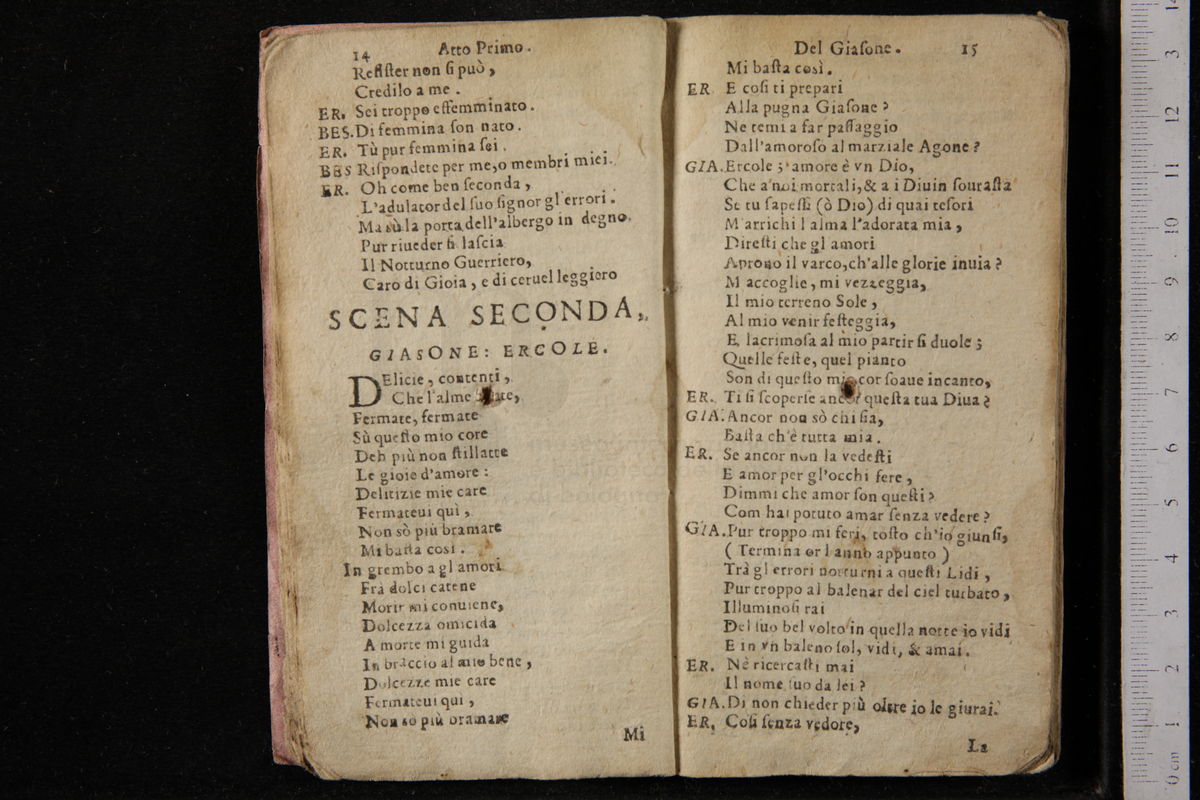 14
Atto Primo.
Resister non si può,
Credilo a me.
ER. Sei troppo effemminato.
BES. Di femmina son nato.
ER. Tù pur femmina sei.
BES Rispondete per me, o membri miei.
ER. Oh come ben seconda,
L'adulator del suo signor gl'errori.
Ma sù la porta dell'albergo in degno,
Pur riueder si lascia
Il Notturno Guerriero,
Caro di Gioia, e di ceruel leggiero
SCENA SECONDA,
GIASONE: ERCOLE.
DElicie, contenti,
Che l'alme
Fermate, fermate
Sù questo mio core
Deh più non stillatte
Le gioie d'amore:
Delitizie mie care
Fermateui quì,
Non sò più bramare
Mi basta così.
In grembo a gl amori
Frà dolci catene
Morir mi conuiene,
Dolcezza omicida
A morte mi guida
In braccio al mio bene,
Dolcezze mie care
Fermateui qui,
Non so più bramare
Mi
Del Giasone. 15
Mi basta così.
ER E cosi ti prepari
Alla pugna Giasone?
Ne temi a far passaggio
Dall'amoroso al marziale Agone?
GIA. Ercole; amore è vn Dio,
Che a noi mortali, & a i Diuin sourasta
Se tu sapessi (ò Dio) di quai tesori
M'arrichi l alma l'adorata mia,
Diresti che gl amori
Aprono il varco, ch'alle glorie inuia?
M accoglie, mi vezzeggia,
Il mio terreno Sole,
Al mio venir festeggia,
E lacrimosa al mio partir si duole;
Quelle feste, quel pianto
Son di questo mio cor soaue incanto,
ER. Ti si scoperse ancor questa tua Diua?
GIA. Ancor non sò chi sia,
Basta ch'è tutta mia.
ER. Se ancor non la vedesti
E amor per gl'occhi fere,
Dimmi che amor son questi?
Com hai potuto amar senza vedere?
GIA. Pur troppo mi ferì, tosto ch'io giunsi,
(Termina or l anno appunto)
Trà gl errori notturni a questi Lidi,
Pur troppo al balenar del ciel turbato,
Illuminosi rai
Del suo bel volto in quella notte io vidi
E in vn baleno sol, vidi, & amai.
ER. Nè ricercasti mai
Il nome suo da lei?
GIA. Di non chieder più oltre io le giurai.
ER. Cosi senza vedore,
La